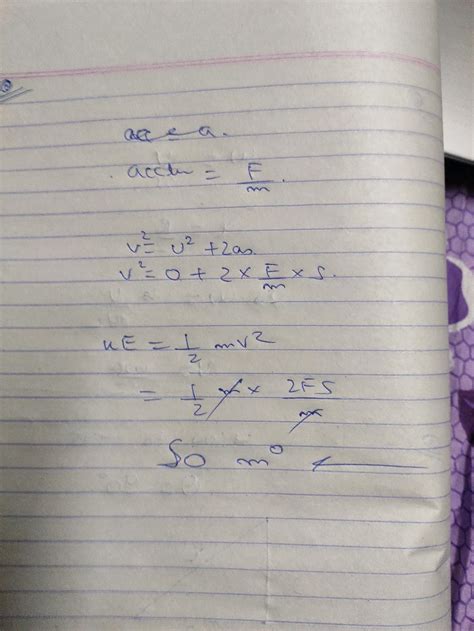 acc = a.
accln = F/m.
v² = u² + 2as.
v² = 0 + 2 × F/m × s.
KE = 1/2 mv²
= 1/2 m × 2FS/m
SO m⁰ ←